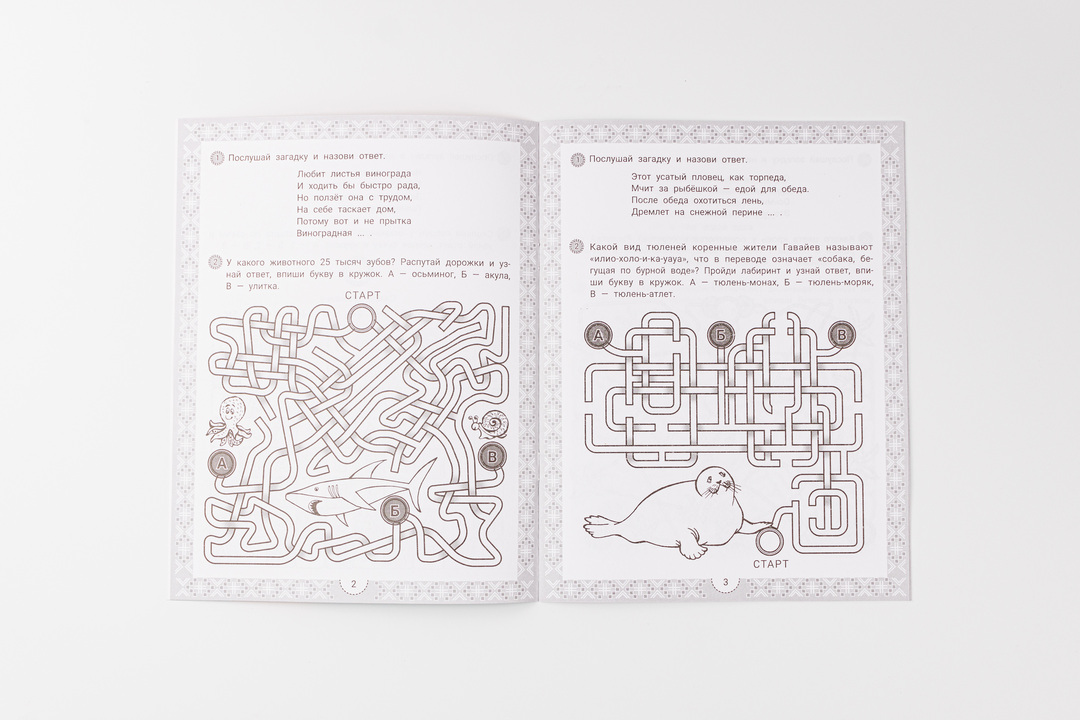 1 Послушай загадку и назови ответ.
Любит листья винограда
И ходить бы быстро рада,
Но ползёт она с трудом,
На себе таскает дом,
Потому вот и не прытка
Виноградная ... .
2 У какого животного 25 тысяч зубов? Распутай дорожки и уз-
най ответ, впиши букву в кружок. А — осьминог, Б — акула,
В — улитка.
СТАРТ
А
В
Б
2
1 Послушай загадку и назови ответ.
Этот усатый пловец, как торпеда,
Мчит за рыбёшкой — едой для обеда.
После обеда охотиться лень,
Дремлет на снежной перине ... .
2 Какой вид тюленей коренные жители Гавайев называют
«илио-холо-и-ка-уауа», что в переводе означает «собака, бе-
гущая по бурной воде»? Пройди лабиринт и узнай ответ, впи-
ши букву в кружок. А — тюлень-монах, Б — тюлень-моряк,
В — тюлень-атлет.
А
Б
В
СТАРТ
3